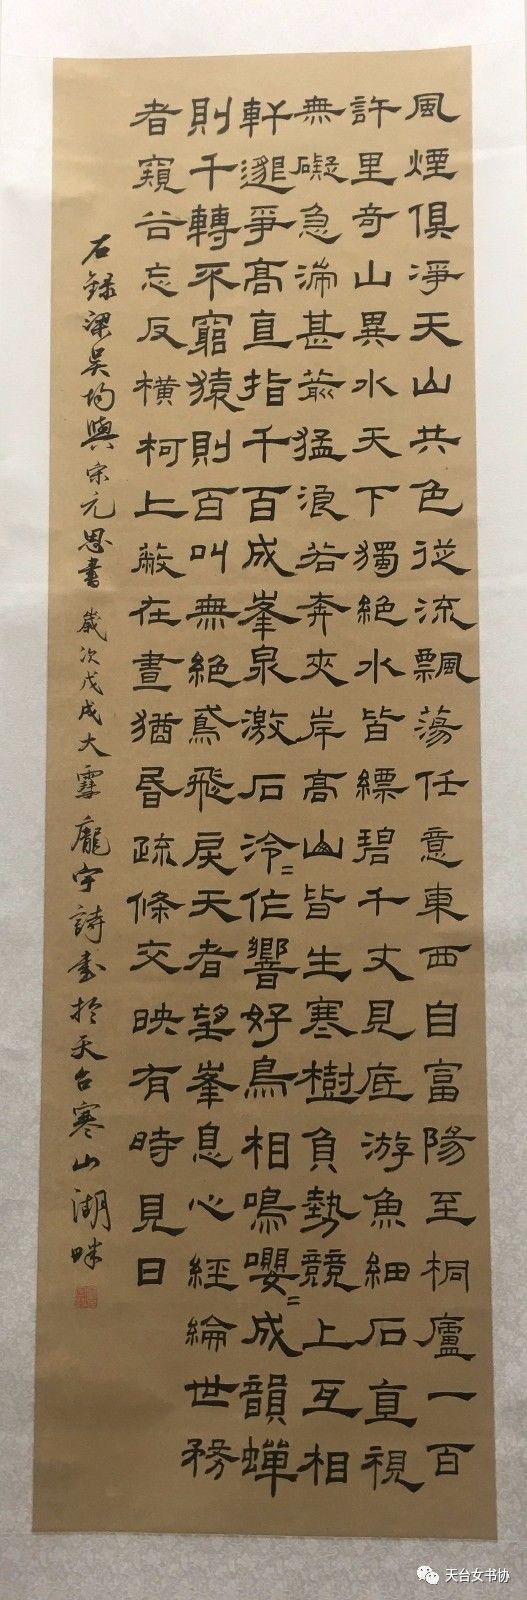 風煙俱淨天山共色從流飄蕩任意東西自富陽至桐廬一百
許里奇山異水天下獨絕水皆縹碧千丈見底游魚細石直視
無礙急湍甚箭猛浪若奔夾岸高山皆生寒樹負勢競上互相
軒邈爭高直指千百成峯泉激石泠=作響好鳥相鳴嚶=成韻蟬
則千轉不窮猿則百叫無絕鳶飛戾天者望峯息心經綸世務
者窺谷忘反橫柯上蔽在晝猶昏疏條交映有時見日
右錄梁吳均與宋元思書 歲次戊戌大雪龐宇詩書於天台寒山湖畔
天台女书协